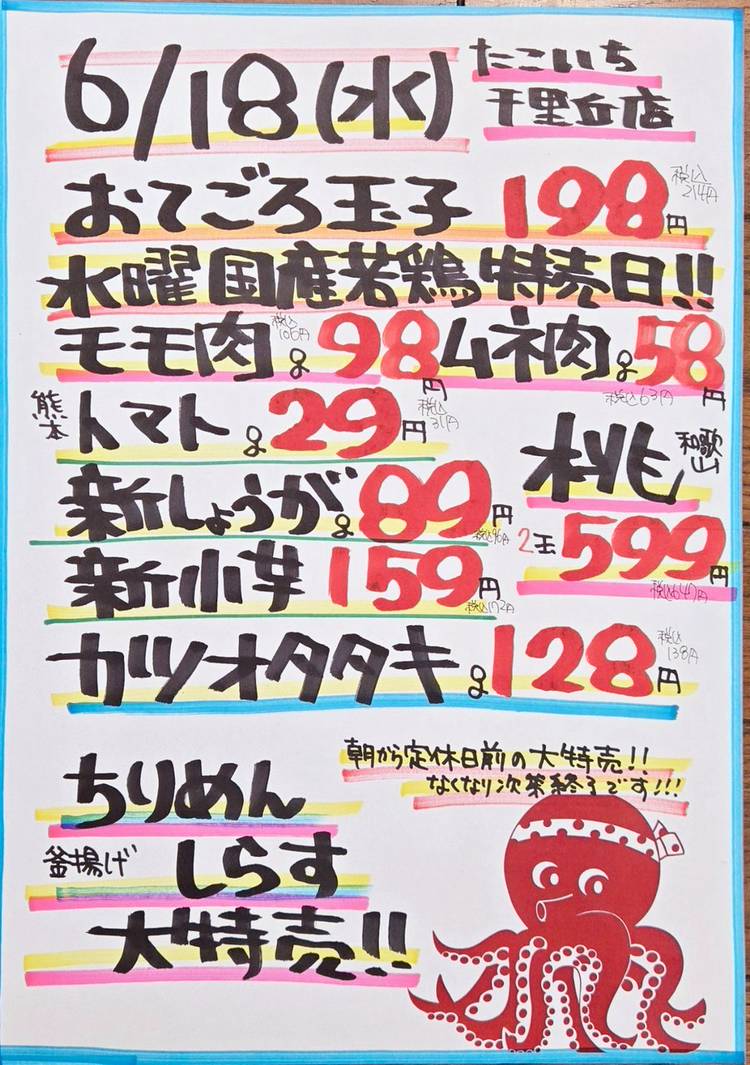 6/18(水)
たこいち
千里丘店
おてごろ玉子 198円 税込214円
水曜国産若鶏特売日!!
モモ肉g98円 税込106円 ムネ肉g58円 税込63円
熊本 トマトg29円 税込31円
桃 和歌山
新しょうがg89円 税込96円
2玉599円 税込647円
新小芋159円 税込172円
カツオタタキg128円 税込138円
朝から定休日前の大特売!!
なくなり次第終了です!!!
ちりめん
釜揚げ しらす
大特売!!